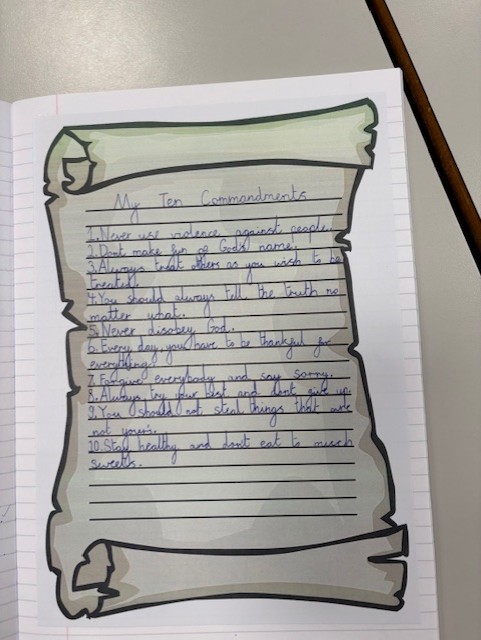 My Ten Commandments
1. Never use violence against people.
2. Dont make fun of God's name.
3. Always treat others as you wish to be
treated.
4. You should always tell the truth no
matter what.
5. Never disobey God.
6. Every day you have to be thankful for
everything.
7. Forgive everybody and say sorry.
8. Always try your best and dont give up.
9. You should not steal things that are
not yours.
10. Stay healthy and dont eat to much
sweets.